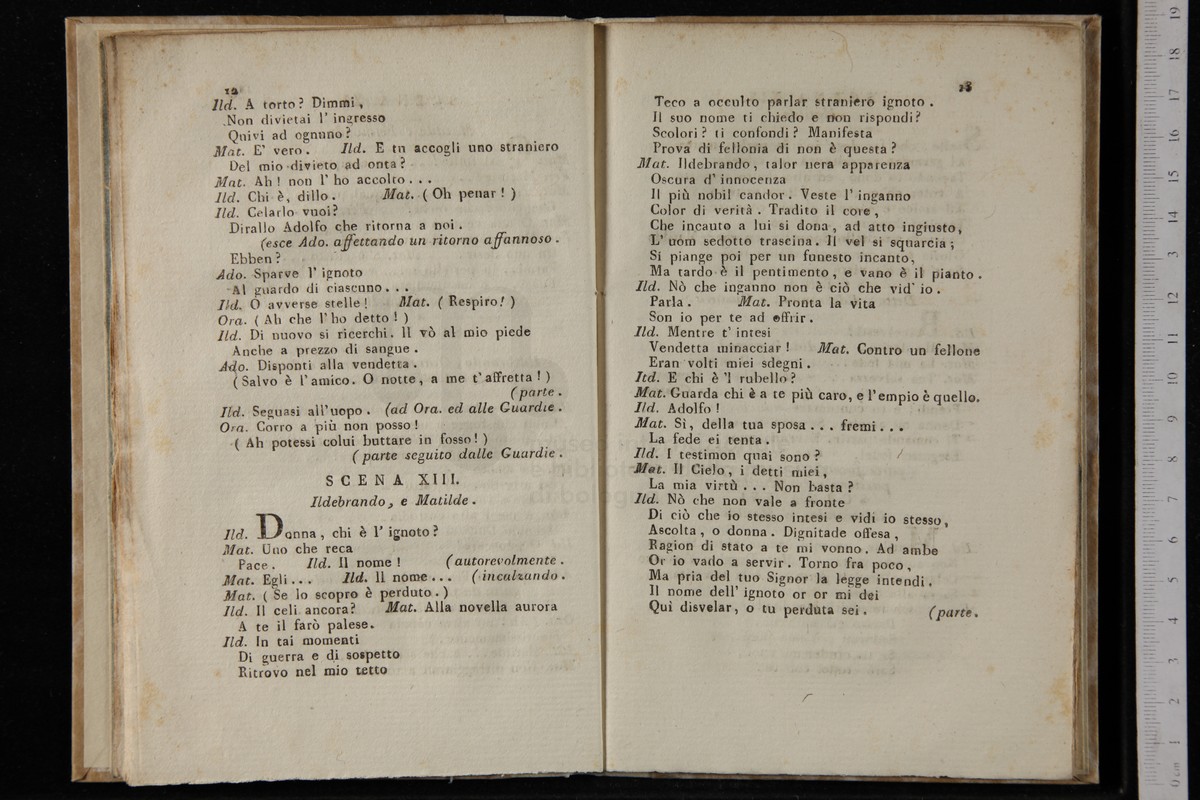 12
Ild. A torto? Dimmi,
Non divietai l' ingresso
Quivi ad ognuno?
Mat. E' vero. Ild. E tu accogli uno straniero
Del mio divieto ad onta?
Mat. Ah! non l' ho accolto...
Ild. Chi è, dillo. Mat. (Oh penar!)
Ild. Celarlo vuoi?
Dirallo Adolfo che ritorna a noi.
(esce Ado. affettando un ritorno affannoso.
Ebben?
Ado. Sparve l' ignoto
Al guardo di ciascuno...
Ild. O avverse stelle! Mat. (Respiro!)
Ora. (Ah che l' ho detto!)
Ild. Di nuovo si ricerchi. Il vò al mio piede
Anche a prezzo di sangue.
Ado. Disponti alla vendetta.
(Salvo è l' amico. O notte, a me t' affretta!)
(parte.
Ild. Seguasi all' uopo. (ad Ora. ed alle Guardie.
Ora. Corro a più non posso!
(Ah potessi colui buttare in fosso!)
(parte seguito dalle Guardie.
SCENA XIII.
Ildebrando, e Matilde.
Ild. Donna, chi è l' ignoto?
Mat. Uno che reca
Pace. Ild. Il nome! (autorevolmente.
Mat. Egli... Ild. Il nome... (incalzando.
Mat. (Se lo scopro è perduto.)
Ild. Il celi ancora? Mat. Alla novella aurora
A te il farò palese.
Ild. In tai momenti
Di guerra e di sospetto
Ritrovo nel mio tetto
Teco a occulto parlar straniero ignoto.
Il suo nome ti chiedo e non rispondi?
Scolori? ti confondi? Manifesta
Prova di fellonia di non è questa?
Mat. Ildebrando, talor nera apparenza
Oscura d' innocenza
Il più nobil candor. Veste l' inganno
Color di verità. Tradito il core,
Che incauto a lui si dona, ad atto ingiusto,
L' uom sedotto trascina. Il vel si squarcia;
Si piange poi per un funesto incanto,
Ma tardo è il pentimento, e vano è il pianto.
Ild. Nò che inganno non è ciò che vid' io.
Parla. Mat. Pronta la vita
Son io per te ad offrir.
Ild. Mentre t' intesi
Vendetta minacciar! Mat. Contro un fellone
Eran volti miei sdegni.
Itd. E chi è 'l rubello?
Mat. Guarda chi è a te più caro, e l' empio è quello.
Ild. Adolfo!
Mat. Si, della tua sposa... fremi...
La fede ei tenta.
Ild. I testimon quai sono?
Mat. Il Cielo, i detti miei,
La mia virtù... Non basta?
Ild. Nò che non vale a fronte
Di ciò che io stesso intesi e vidi io stesso,
Ascolta, o donna. Dignitade offesa,
Ragion di stato a te mi vonno. Ad ambe
Or io vado a servir. Torno fra poco,
Ma pria del tuo Signor la legge intendi.
Il nome dell' ignoto or or mi dei
Quì disvelar, o tu perduta sei. (parte.